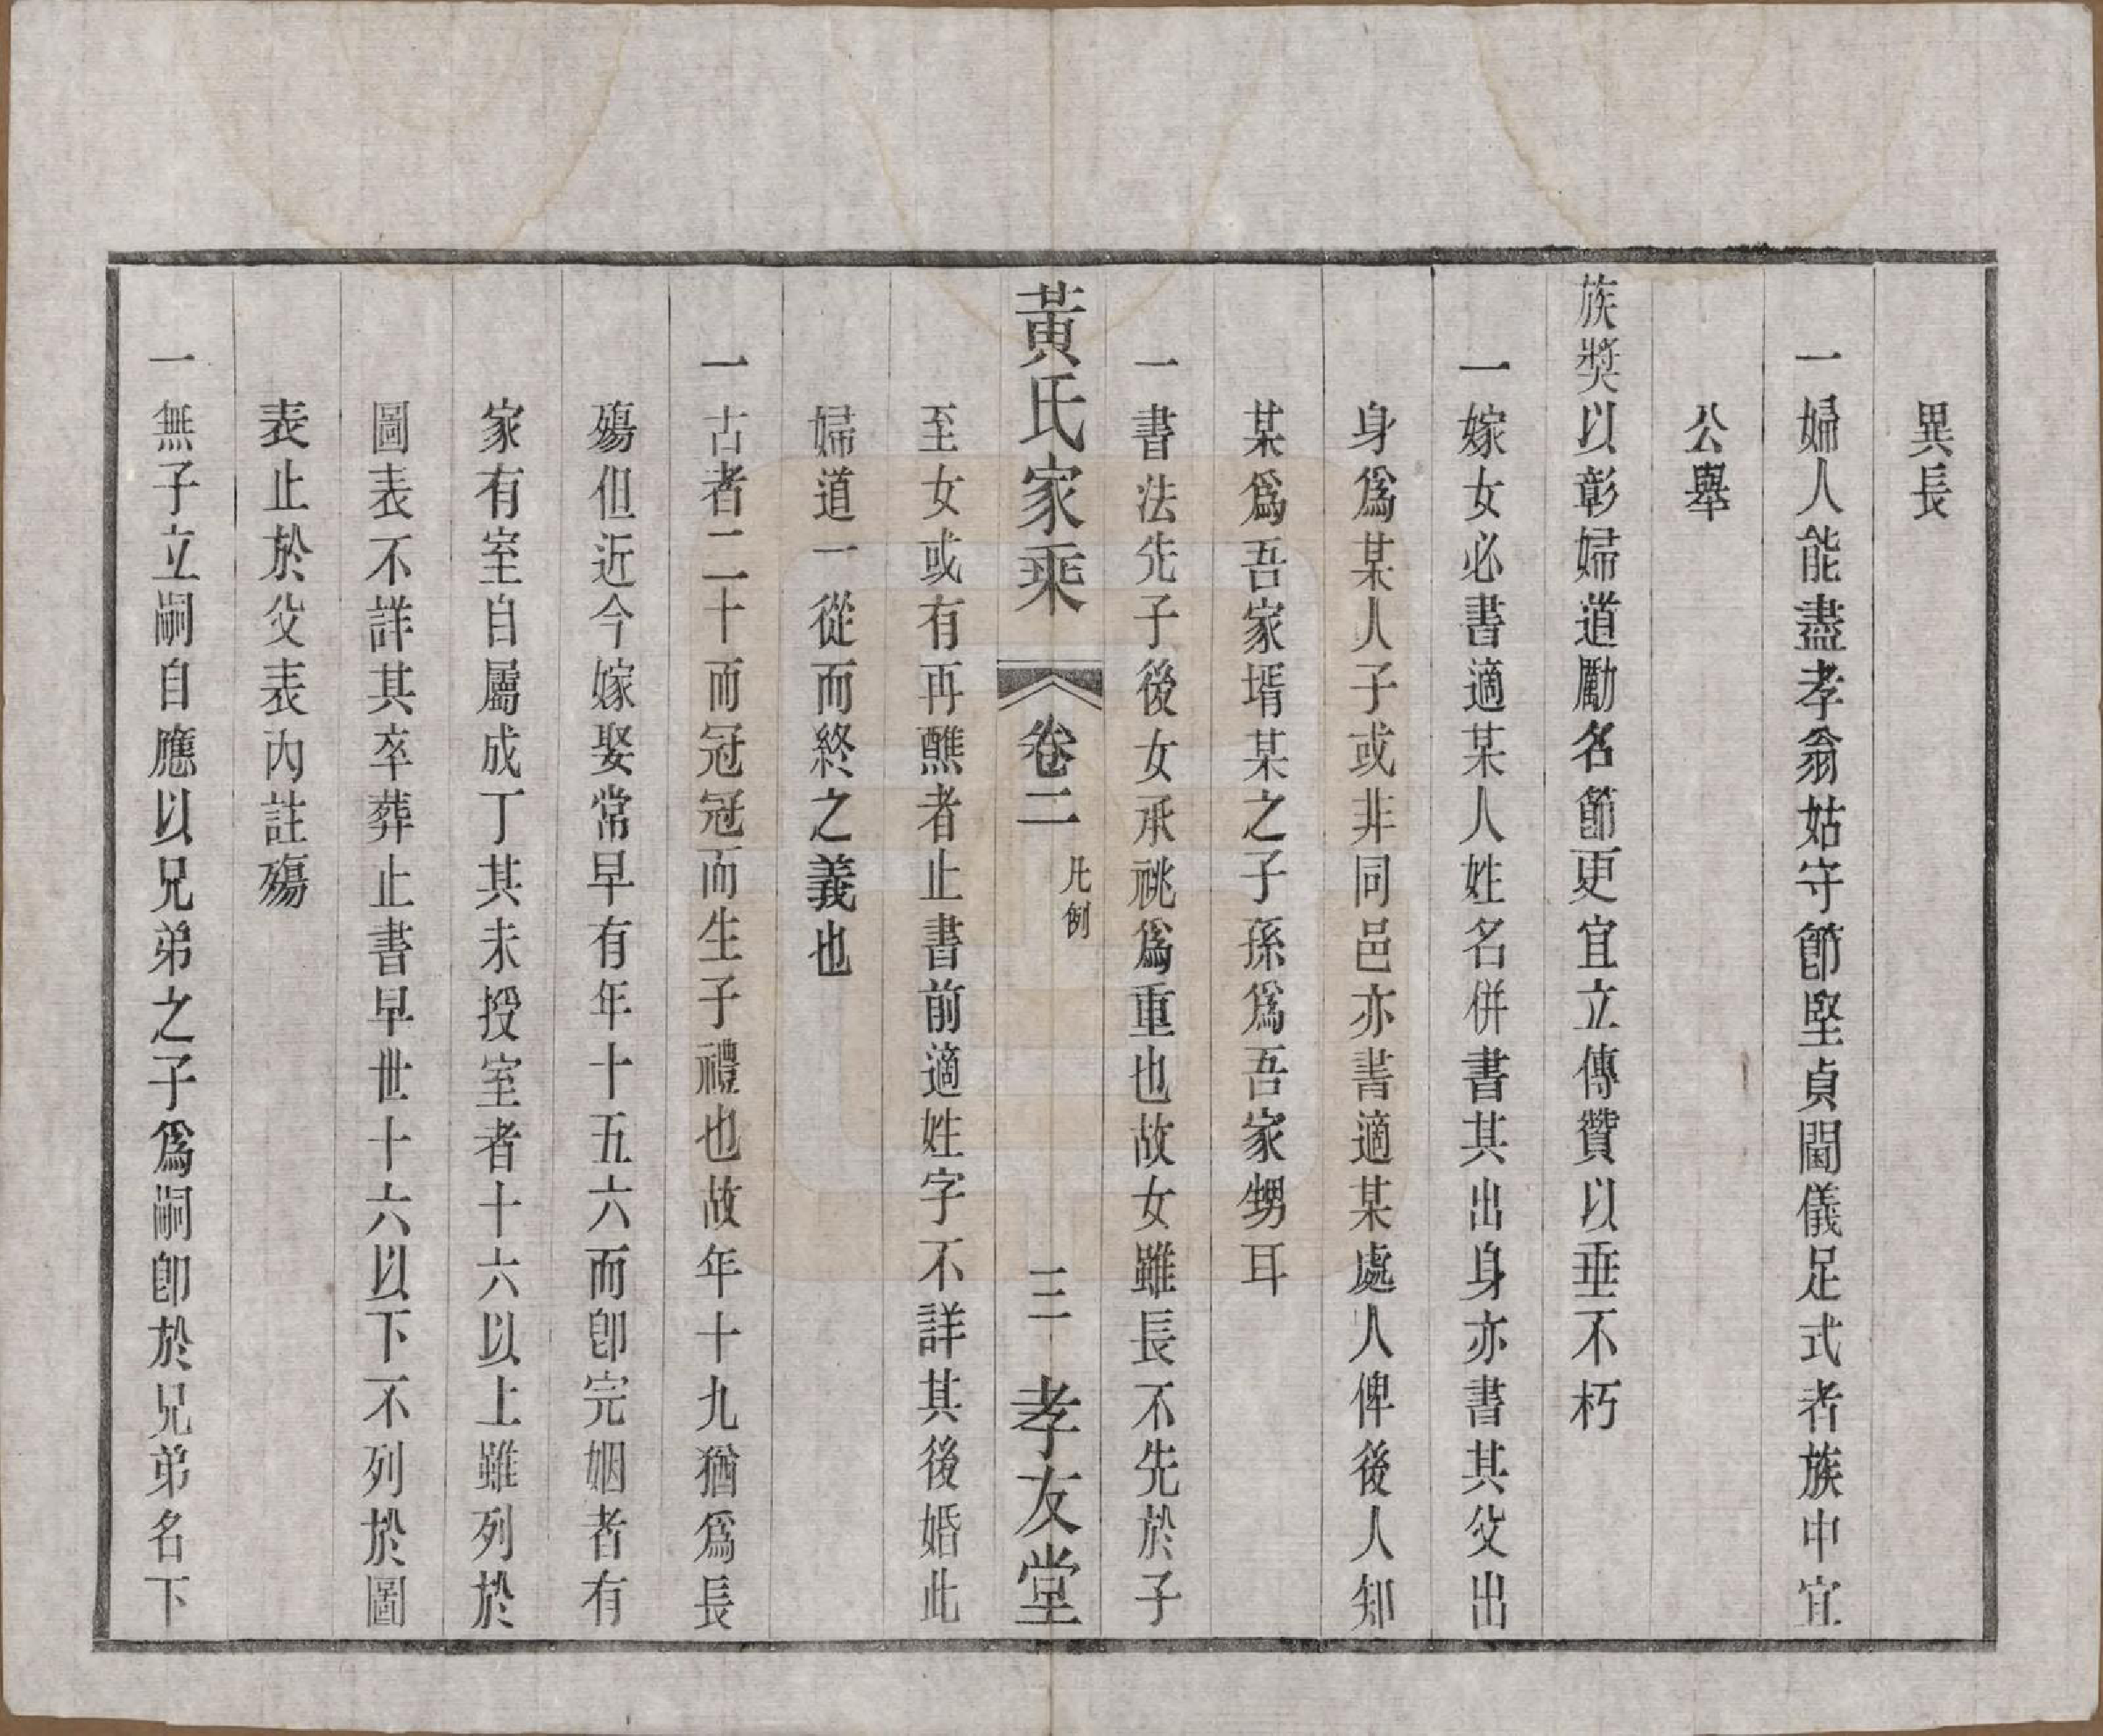 異長
一婦人能盡孝翁姑守節堅貞閫儀足式者族中宜
公舉
族奬以彰婦道勵名節更宜立傳贊以垂不朽
一嫁女必書適某人姓名併書其出身亦書其父出
身爲某人子或非同邑亦書適某處人俾後人知
某爲吾家壻某之子孫爲吾家甥耳
一書法先子後女承祧爲重也故女雖長不先於子
黃氏家乘
卷二
凡例
三
孝友堂
至女或有再醮者止書前適姓字不詳其後婚此
婦道一從而終之義也
一古者二十而冠冠而生子禮也故年十九猶爲長
殤但近今嫁娶常早有年十五六而卽完姻者有
家有室自屬成丁其未授室者十六以上雖列於
圖表不詳其卒葬止書早世十六以下不列於圖
表止於父表內註殤
一無子立嗣自應以兄弟之子爲嗣卽於兄弟名下